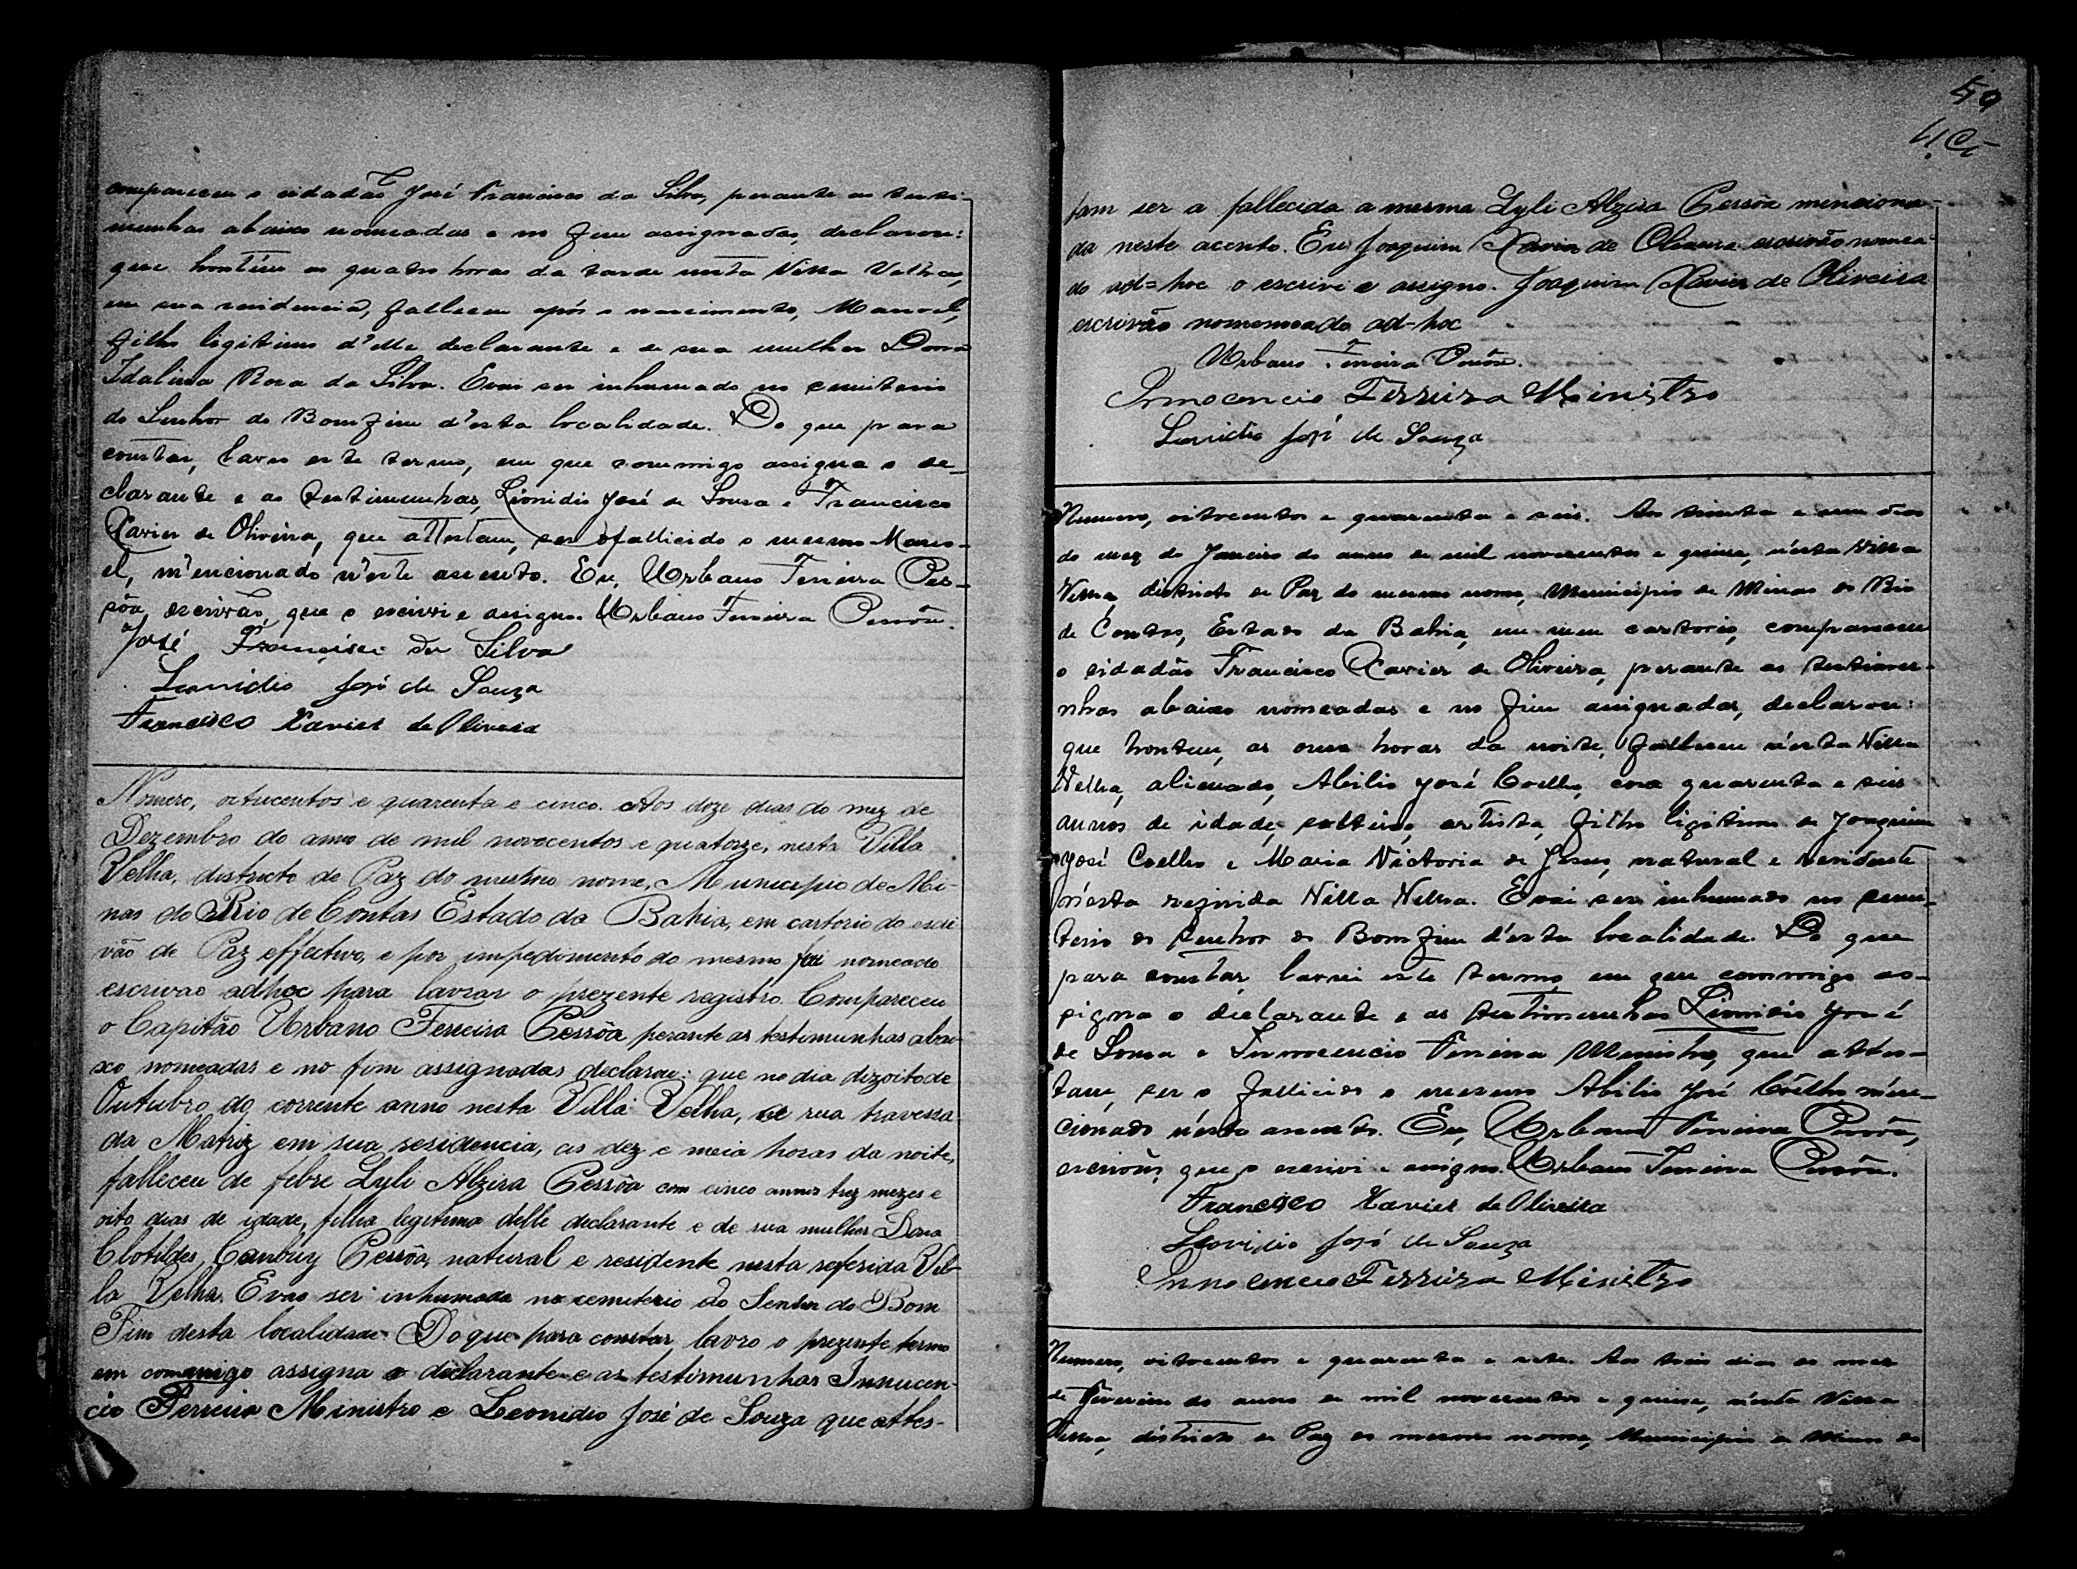 compareceu o cidadão José Francisco da Silva, perante as teste-
munhas abaixo nomeadas e no fim assignadas, declarou:
que hontem as quatro horas da tarde nesta Villa Velha,
em sua residencia, falleceu após o nascimento, Manoel,
filho legitimo d'elle declarante e de sua mulher Dona
Idalina Rosa da Silva. E vai ser inhumado no cemiterio
do Senhor do Bomfim d'esta localidade. Do que para
constar, lavro este termo, em que commigo assigna o de-
clarante e as testimunhas, Leonidio José de Sousa e Francisco
Xavier de Oliveira, que attestam, ser o fallicido o mesmo Mano-
el, m'encionado n'este assento. Eu, Urbano Ferreira Pes-
sôa, escrivão, que o escrivi e assigno. Urbano Ferreira Pessôa.
José Francisco da Silva
Leonidio José de Souza
Francisco Xavier de Oliveira
Numero, oitucentos e quarenta e cinco. Aos doze dias do mez de
Dezembro do anno de mil novecentos e quatorze, nesta Villa
Velha, districto de Paz do mesmo nome, Municipio de Mi-
nas do Rio de Contas Estado da Bahia, em cartorio do escri-
vão de Paz effectivo, e por impedimento do mesmo foi nomeado
escrivão adhoc para lavrar o prezente registro. Compareceu
o Capitão Urbano Ferreira Pessôa perante as testimunhas abai-
xo nomeadas e no fim assignadas declarou: que no dia dizoito de
Outubro do corrente anno nesta Villa Velha, a rua travessa
da Matriz em sua residencia, as dez e meia horas da noite,
falleceu de febre Lyli Alzira Pessôa com cinco annos trez mezes e
oito dias de idade, filha legitima delle declarante e de sua mulher Dona
Clotildes Canbuy Pessôa, natural e residente nesta referida Vil-
la Velha. E vae ser inhumada no cemiterio do Senhor do Bom
Fim desta localidade. Do que para constar lavro o prezente termo
em commigo assigna o declarante e as testimunhas Innucen-
cio Ferreira Ministro e Leonidio José de Souza que attes-
59
tam ser a fallecida a mesma Lyli Alzira Pessôa menciona-
da neste acento. Eu Joaquim Xavier de Oliveira escrivão nomea-
do ad=hoc o escrivi e assigno. Joaquim Xavier de Oliveira
escrivão nomemeado ad-hoc
Urbano Ferreira Pessôa.
Innocencio Ferreira Ministro
Leonidio José de Souza
Numero, oitocentos e quarenta e seis. Aos trinta e um dias
do mez de Janeiro do anno de mil novecentos e quinze, n'esta Villa
Velha, districto de Paz do mesmo nome, Municipio de Minas do Rio
de Contas, Estado da Bahia, em meu cartorio, compareceu
o cidadão Francisco Xavier de Oliveira, perante as testimu-
nhas abaixo nomeadas e no fim assignadas, declarou:
que hontem, as onze horas da noite, falleceu n'esta Villa
Velha, alienado, Abilio José Coelho, com quarenta e seis
annos de idade, solteiro, artista, filho ligitimo de Joaquim
José Coelho e Maria Victoria de Jesus, natural e residente
n'esta referida Villa Velha. E vai ser inhumado no cemi-
terio do Senhor do Bomfim d'esta localidade. Do que
para constar, lavrei este termo, em que commigo as-
signa o declarante e as testimunhas Leonidio José
de Sousa e Innocencio Ferreira Ministro, que attes-
tam, ser o fallicido o mesmo Abilio José Coêlho men-
cionado n'este assento. Eu, Urbano Ferreira Pessôa,
escrivão, que o escrivi e assigno. Urbano Ferreira Pessôa.
Francisco Xavier de Oliveira
Leonidio José de Souza
Innocencio Ferreira Ministro
Numero, oitocentos e quarenta e sete. Aos trêis dias do mez
de Fevereiro do anno de mil novecentos e quinze, n'esta Villa
Velha, districto de Paz do mesmo nome, Municipio de Minas do